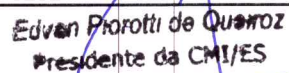 Edvan Piorotti de Queiroz
Presidente da CMI/ES